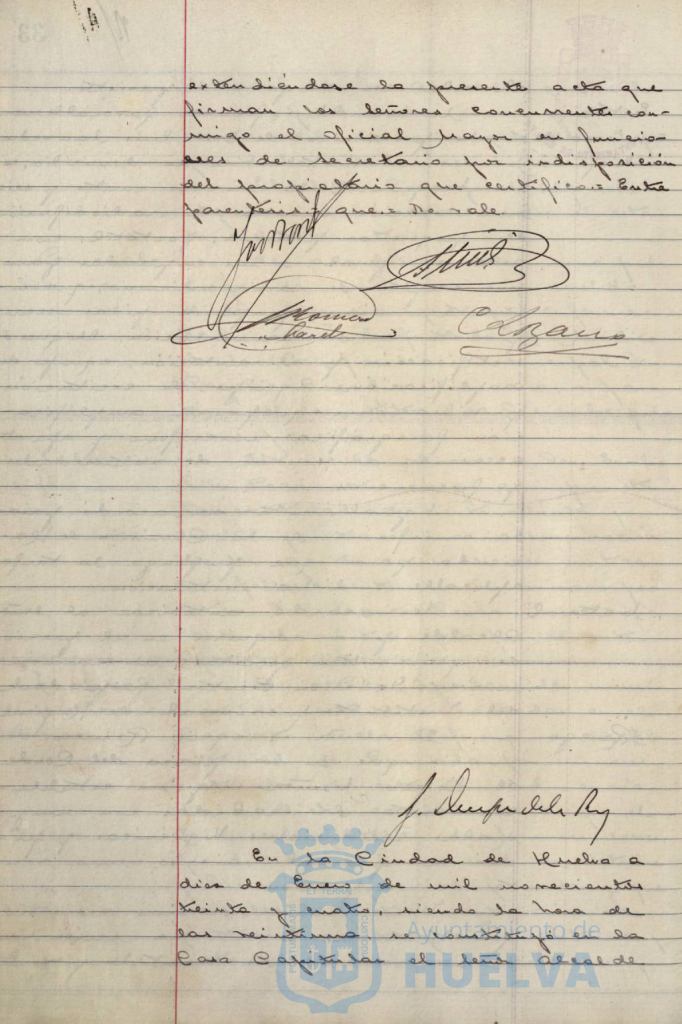 extendiéndose la presente acta que
firman los señores concurrentes con-
migo el Oficial Mayor en funcio-
nes de Secretario por indisposición
del propietario que certifico.= Entre
parentesis.= que.= No vale.
Romero
C Lozano
J. Duque de la
En la Ciudad de Huelva a
diez de Enero de mil novecientos
treinta y cuatro, siendo la hora de
las veintiuna se constituyó en la
Casa Capitular el señor Alcalde
Ayuntamiento de
HUELVA